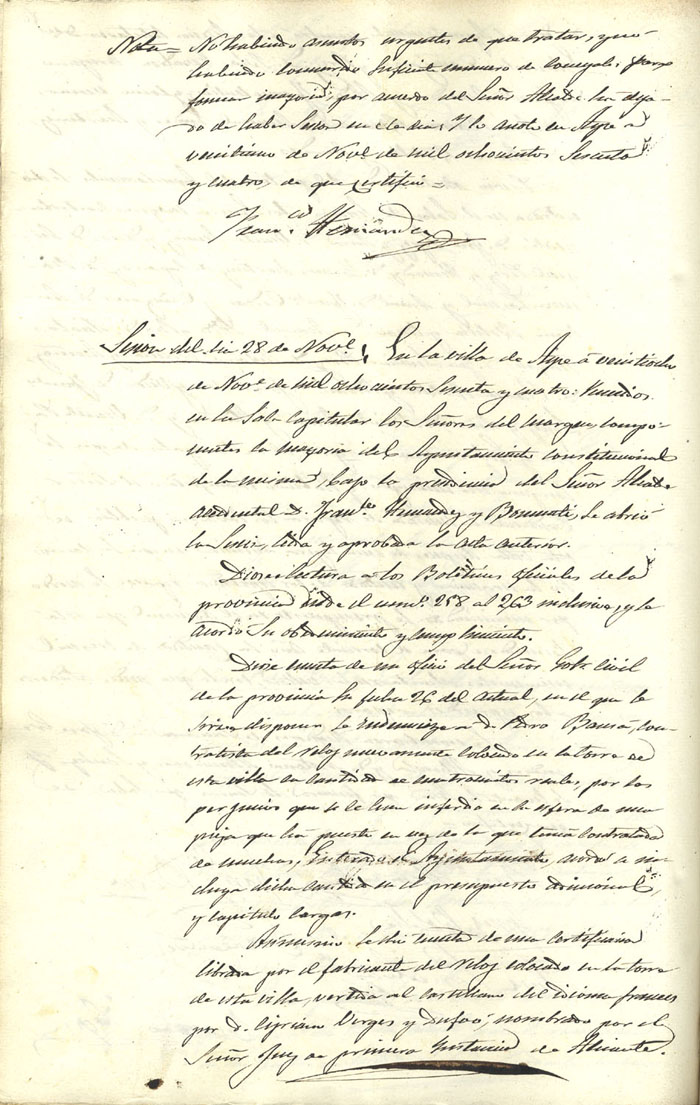 Nota = No habiendo asuntos urgentes de que tratar, y no
habiendo concurrido suficiente numero de concejales para
formar mayoria; por acuerdo del Señor Alcalde ha deja-
do de haber Sesion en este dia; Y lo anoto en Aspe a
veintiuno de Nov.e de mil ochocientos Sesenta
y cuatro, de que certifico =
Fran.co Hernandez
Sesion del dia 28 de Nov.e En la villa de Aspe á veintiocho
de Nov.e de mil ochocientos Sesenta y cuatro: Reunidos
en la Sala Capitular los Señores del margen, compo-
nentes la mayoria del Ayuntamiento constitucional
de la misma, bajo la presidencia del Señor Alcalde
accidental D. Fran.co Hernandez y Bonmati, se abrió
la Sesion, leida y aprobada la acta anterior.
Diose lectura a los Boletines oficiales de la
provincia desde el num.o 258 al 263 inclusive, y se
acordó Su obedecimiento y cumplimiento.
Diose cuenta de un oficio del Señor Gob.r Civil
de la provincia su fecha 26 del actual, en el que se
sirve disponer se indemnize a D. Pedro Bausá, con-
tratista del Reloj nuevamente colocado en la torre de
esta villa en cantidad de cuatrocientos reales, por los
perjuicios que se le han inferido en la esfera de una
pieza que ha puesto en vez de la que tenia contratada
de muchas; Enterado el Ayuntamiento, acordó se in-
cluya dicha cantidad en el presupuesto adicional,
y capitulo cargas.
Asimismo se dió cuenta de una certificacion
librada por el fabricante del Reloj colocado en la torre
de esta villa, vertida al castellano del idioma frances
por D. Cipriano Verges y Dufao, nombrado por el
Señor Juez de primera Instancia de Alicante.